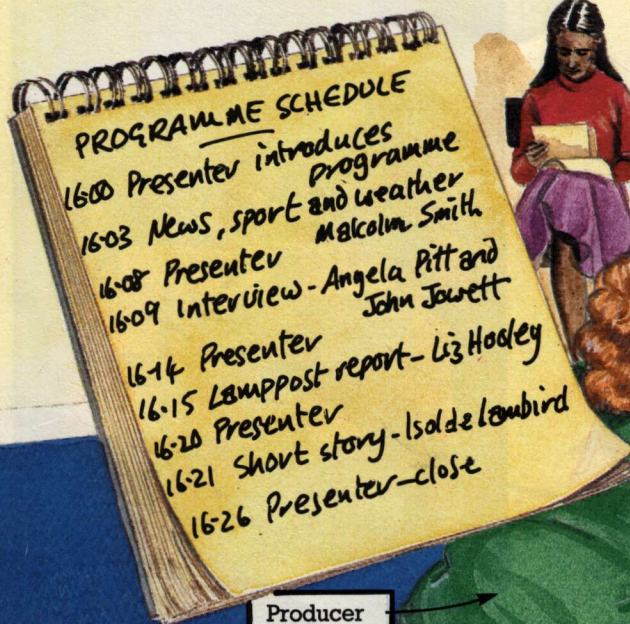 PROGRAMME SCHEDULE
16.00 Presenter introduces
programme
16.03 News, sport and weather
Malcolm Smith
16.08 Presenter
16.09 Interview - Angela Pitt and
John Jowett
16.14 Presenter
16.15 Lamppost report - Liz Hooley
16.20 Presenter
16.21 Short story - Isolde Lambird
16.26 Presenter - close
Producer